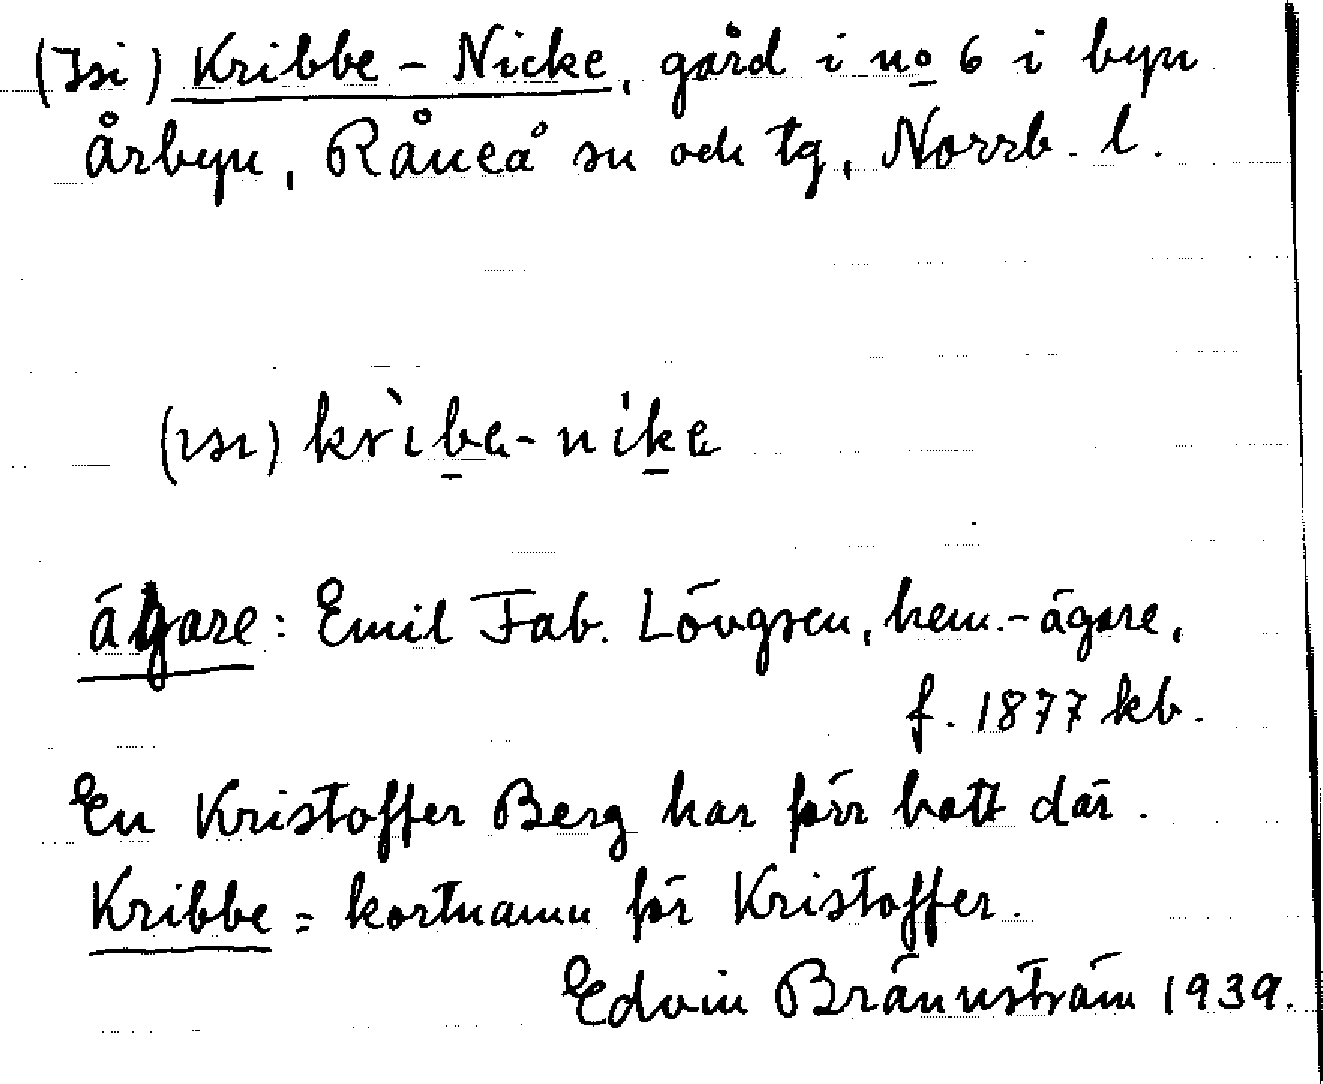 (Isi) Kribbe-Nicke, gård i no 6 i byn
Årbyn, Råneå sn och tg, Norrb. l.
(ɪsɪ) krìbe-nike
ägare: Emil Fab. Lövgren, hem.-ägare,
f. 1877 kb.
En Kristoffer Berg har förr bott där.
Kribbe = kortnamn för Kristoffer.
Edvin Brännström 1939.